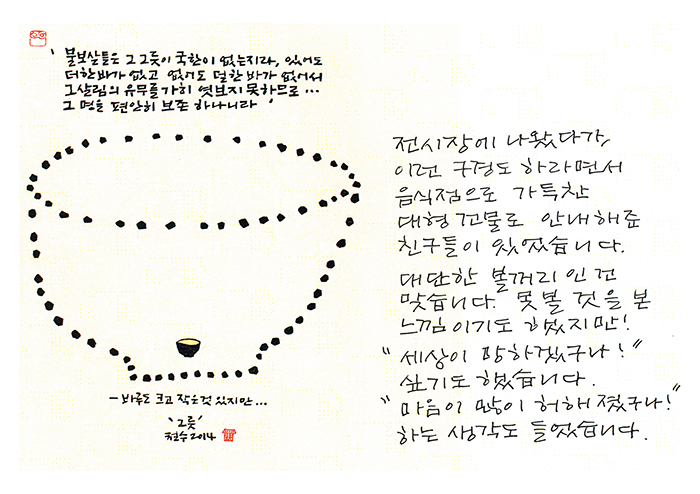 ' 불보살들은 그 그릇이 국한이 없는지라, 있어도
더한바가 없고 없어도 덜한 바가 없어서
그 살림의 유무를 가히 엿보지 못하므로…
그 명을 편안히 보존 하나니라 '
- 바루도 크고 작은것 있지만…
'그릇'
철수 2014
전시장에 나왔다가,
이런 구경도 하라면서
음식점으로 가득찬
대형 건물로 안내해준
친구들이 있었습니다.
대단한 볼거리인건
맞습니다. 못볼 것을 본
느낌이기도 했지만!
"세상이 망하겠구나!"
싶기도 했습니다.
"마음이 많이 허해졌구나!"
하는 생각도 들었습니다.